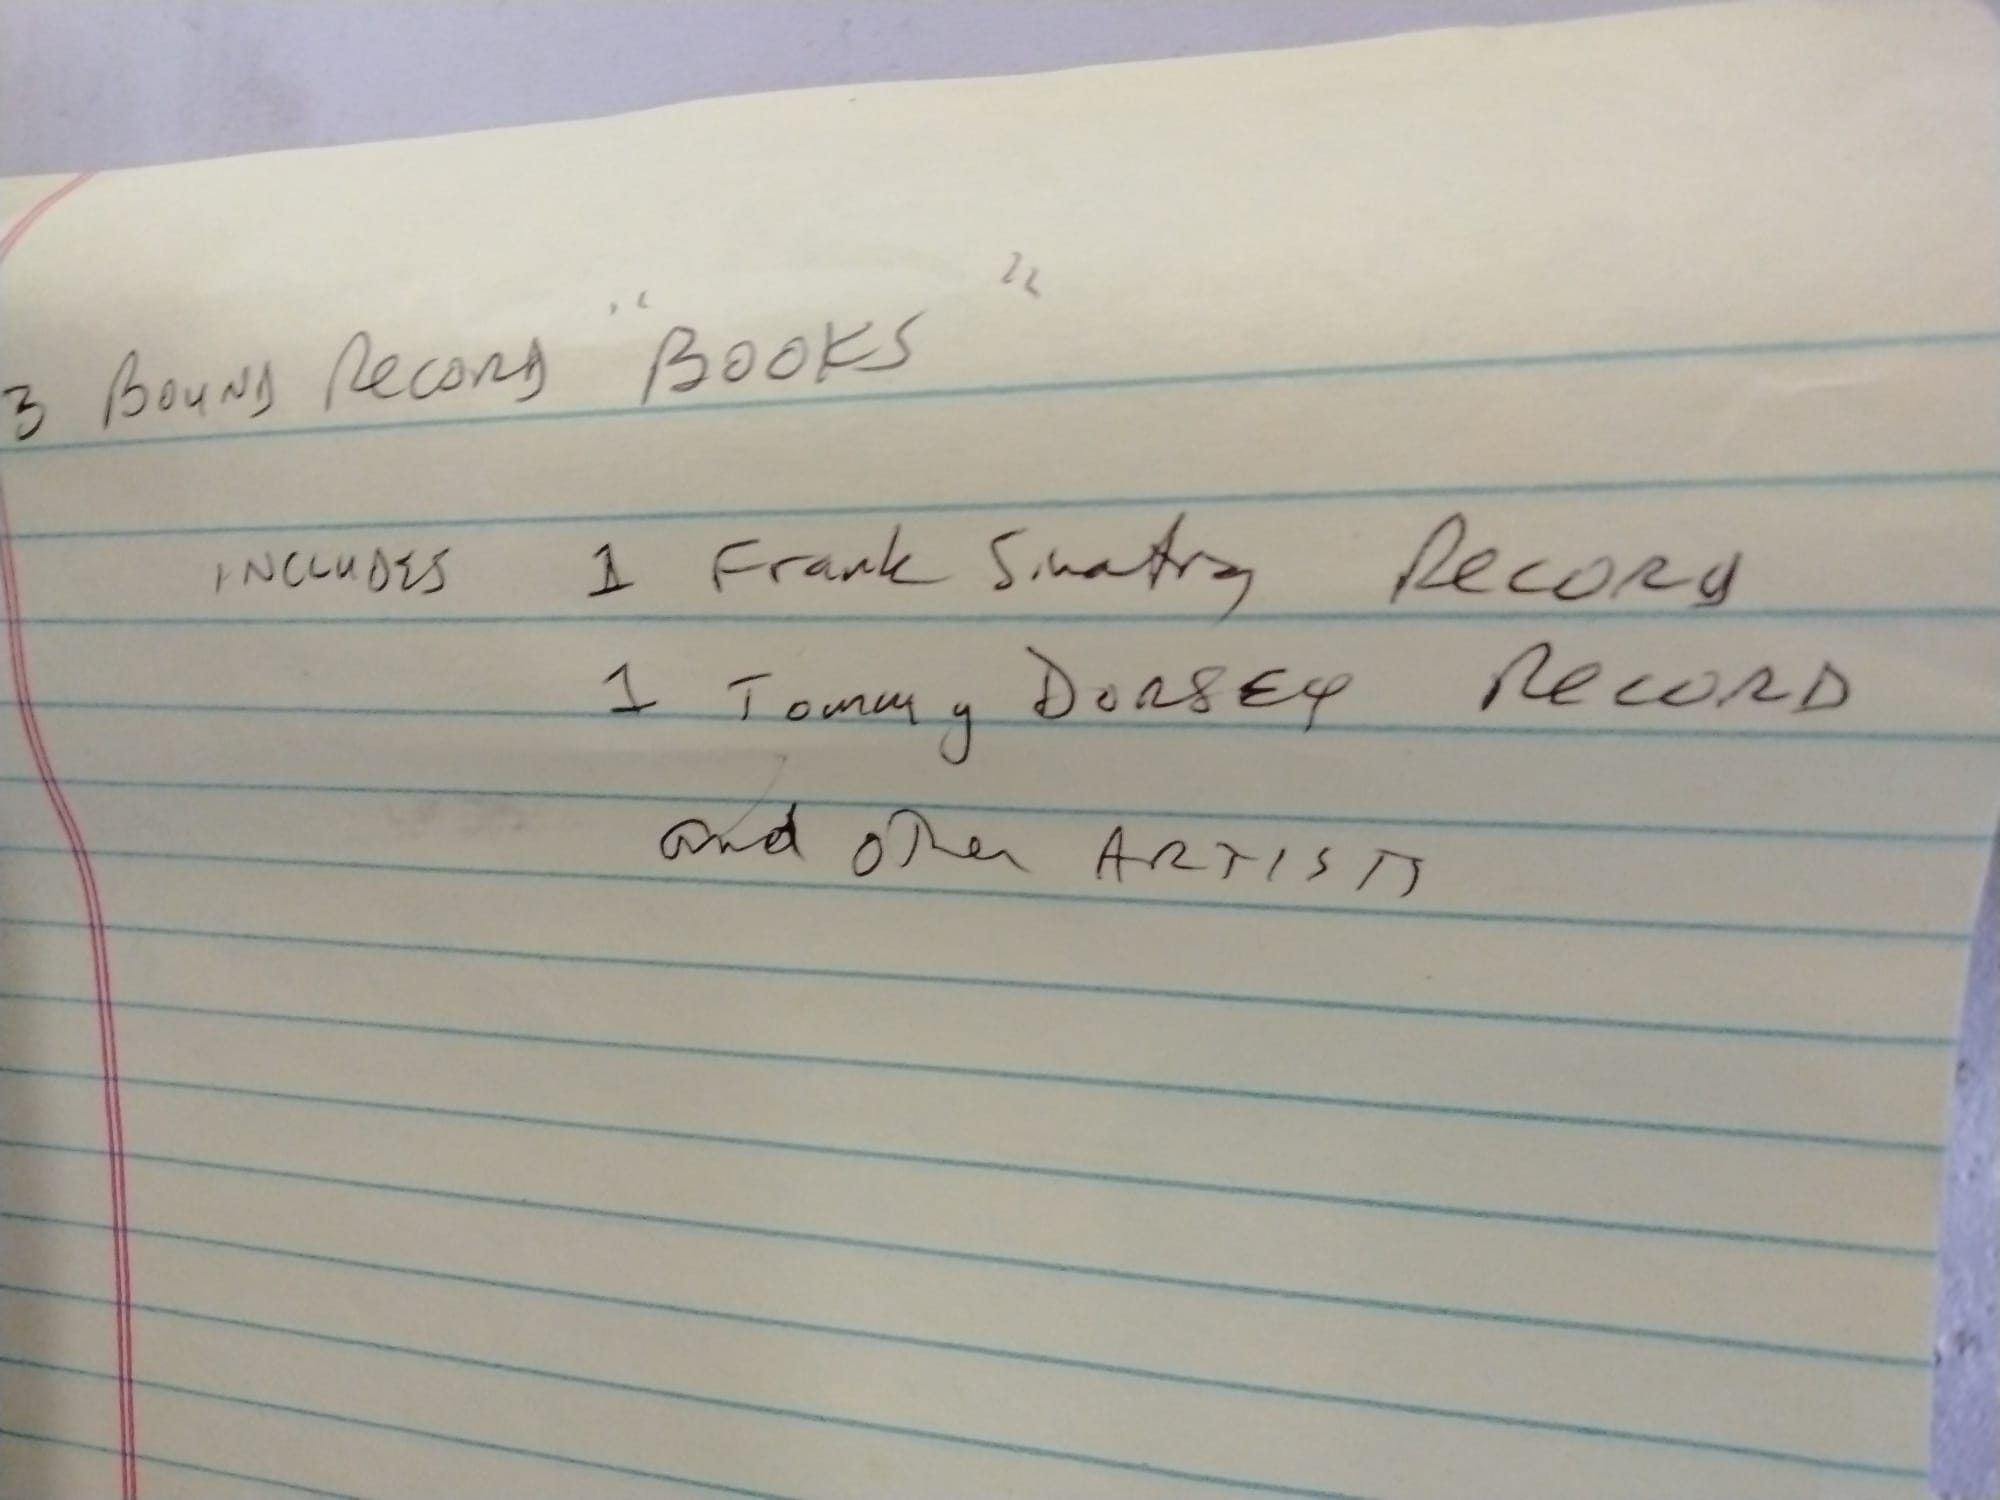 3 Bound Record "Books"
INCLUDES 1 Frank Sinatra Record
1 Tommy DORSEY RECORD
and other ARTISTS